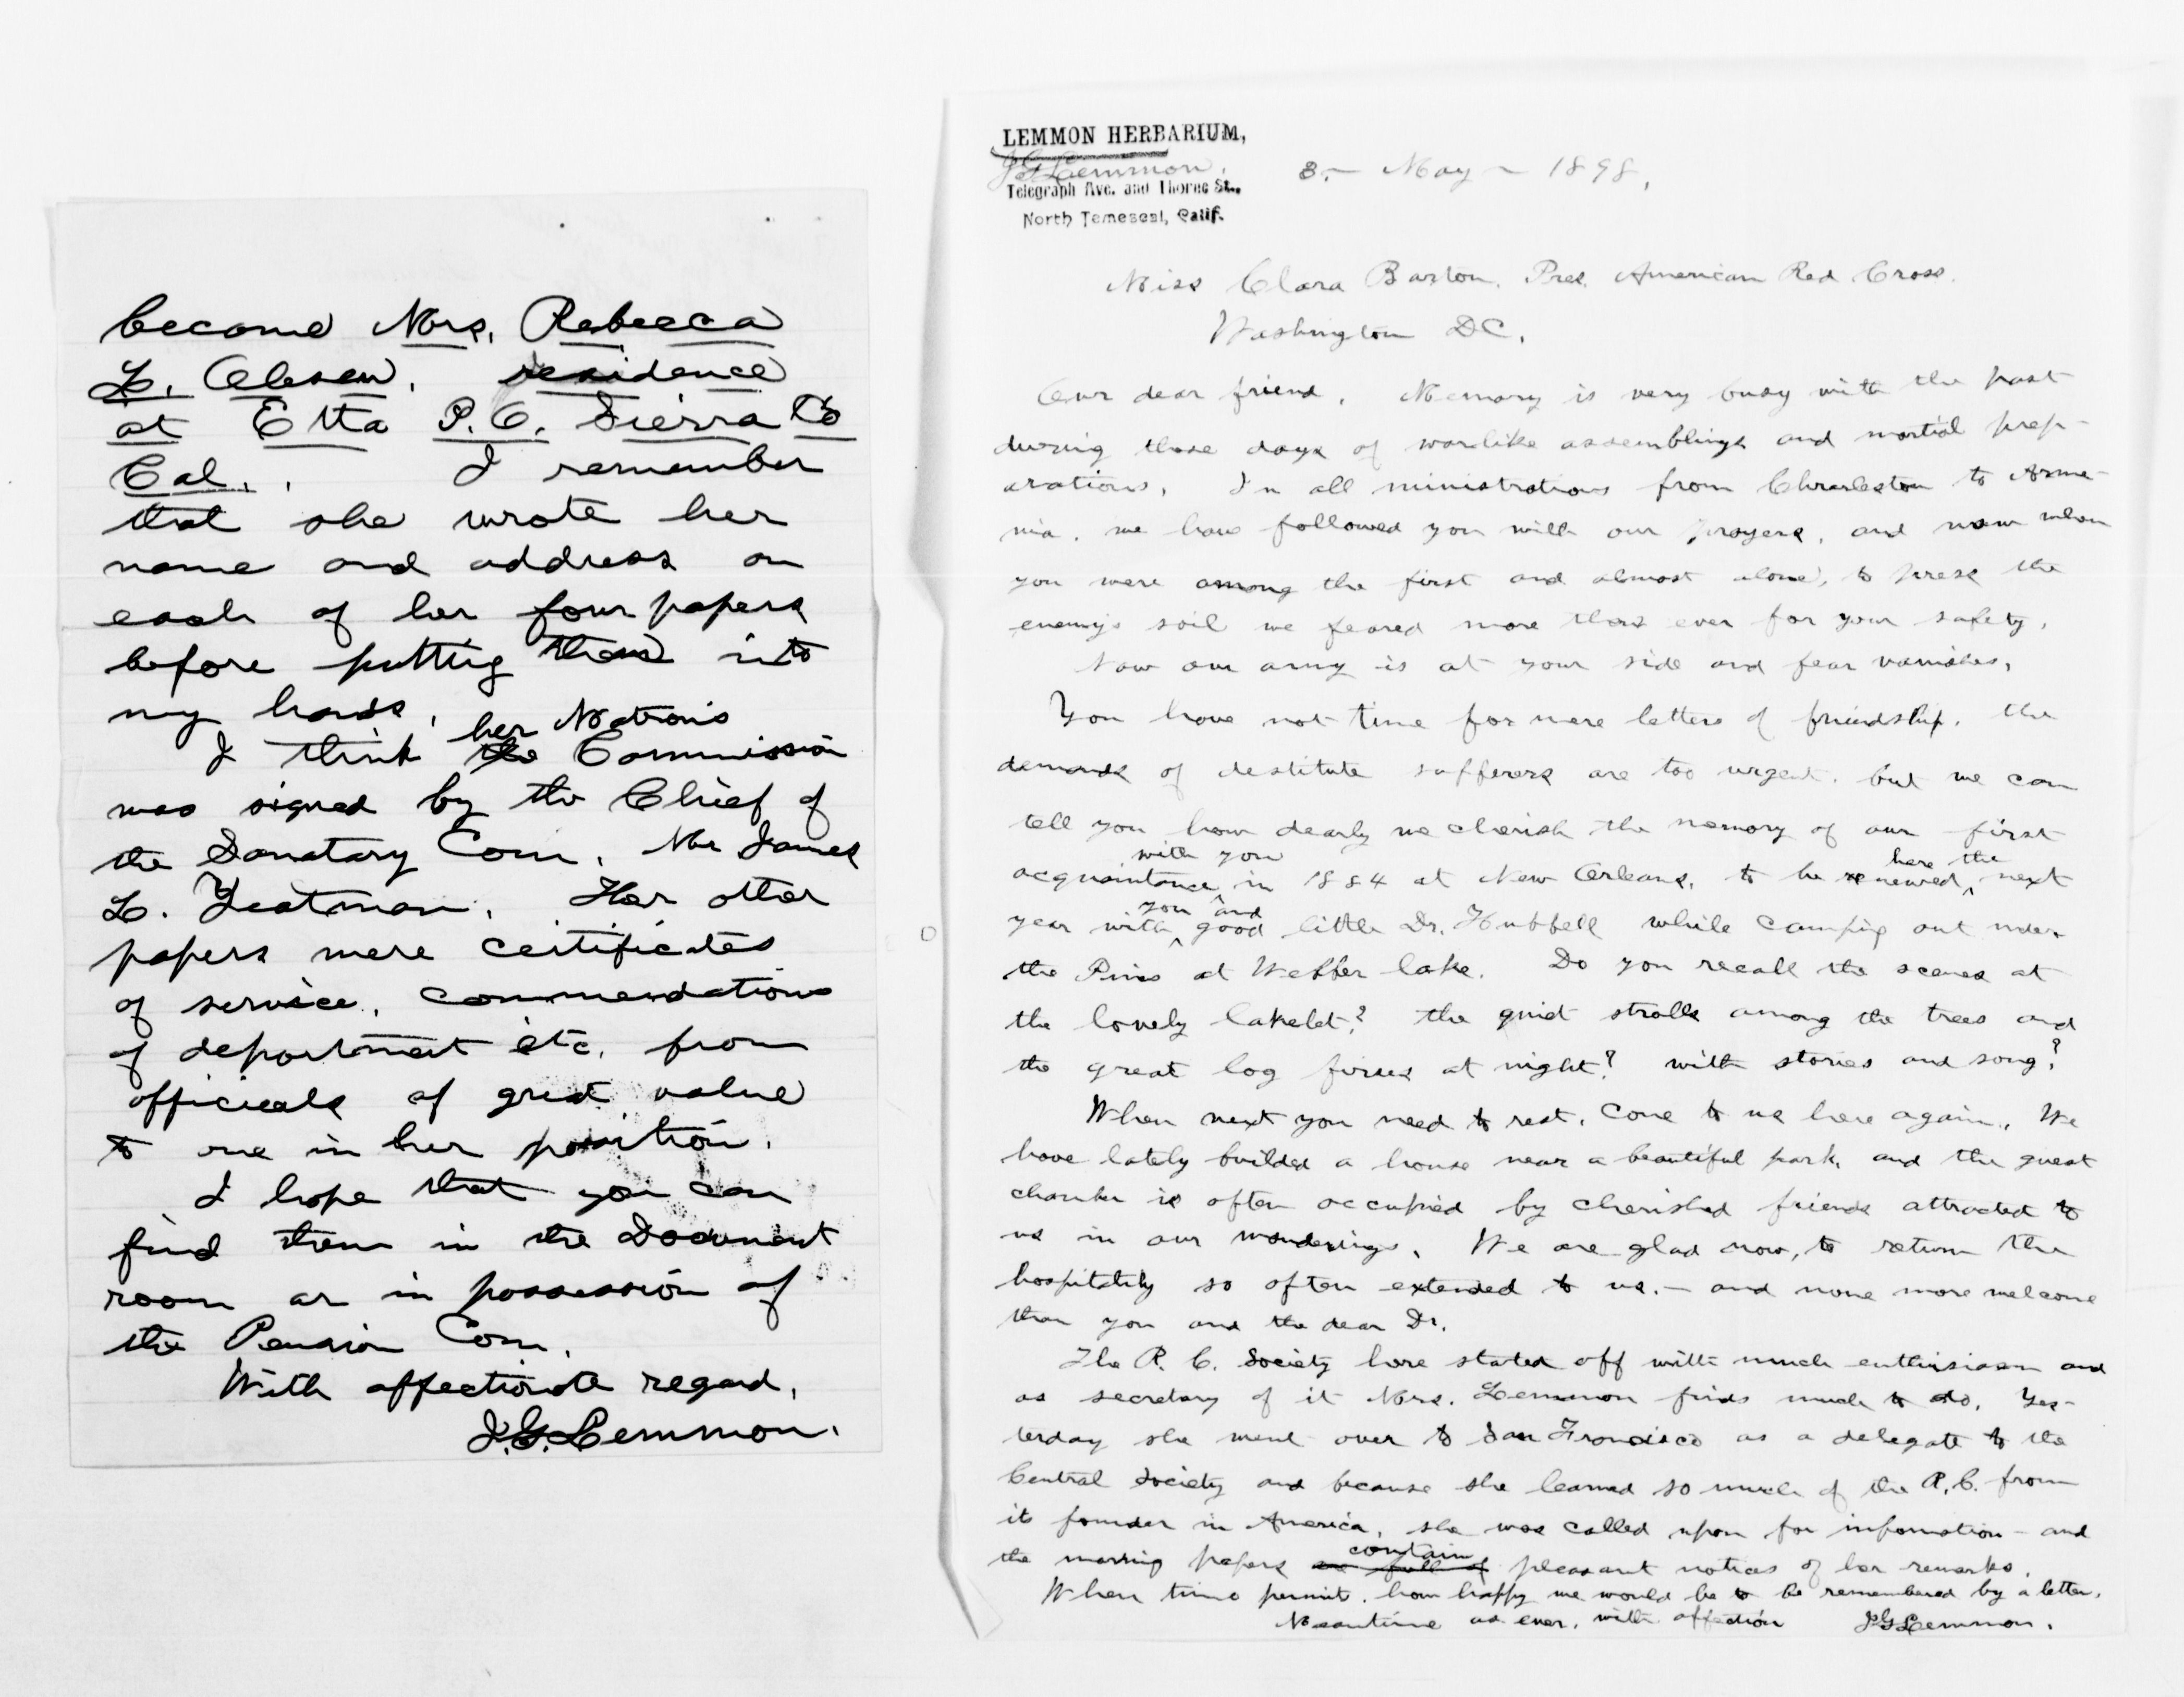 become Mrs. Rebecca
L. Olesen, residence
at Etta P.O. Sierra Co
Cal. I remember
that she wrote her
name and address on
each of her four papers
before putting them into
my hands.
I think the her Matron's Commission
was signed by the Chief of
the Sanatary Com. Mr James
L. Yeatman. Her other
papers were certificates
of service, commendations
of department etc. from
officieals of great value
to one in her position.
I hope that you can
find them in the Document
room or in possession of
the Pension Com.
With affectionate regard,
J.G. Lemmon.
LEMMON HERBARIUM,
J G Lemmon.
Telegraph Ave. and Thorne St.,
North Temescal, Calif.
8 – May – 1898,
Miss Clara Barton, Pres. American Red Cross.
Washington DC,
Our dear friend, Memory is very busy with the past
during these days of warlike assemblings and martial prep-
arations. In all ministrations from Charleston to Arme-
nia, we have followed you with our prayers, and now when
you were among the first and almost alone, to press the
enemy's soil we feared more than ever for your safety,
Now our army is at your side and fear vanishes.
You have not time for mere letters of friendship, the
demands of destitute sufferers are too urgent, but we can
tell you how dearly we cherish the memory of our first
acquaintance with you in 1884 at New Orleans, to be renewed here the next
year with you and good little Dr. Hubbell while camping out under
the Pines at Webber lake. Do you recall the scenes at
the lovely lakelet? the quiet strolls among the trees and
the great log fires at night? with stories and song?
When next you need to rest, come to us here again, We
have lately builded a house near a beautiful park, and the guest
chamber is often occupied by cherished friends attracted to
us in our wanderings. We are glad now, to return the
hospitality so often extended to us. – and none more welcome
than you and the dear Dr.
The R. C. Society here stated off with much enthusiasm and
as secretary of it Mrs. Lemmon finds much to do. Yes-
terday she went over to San Francisco as a delegate to the
Central Society and because she learned so much of the R. C. from
its founder in America, she was called upon for information – and
the morning papers are full of contain pleasant notices of her remarks.
When time permit, how happy we would be to be remembered by a letter.
Meantime as ever, with affection J G Lemmon.